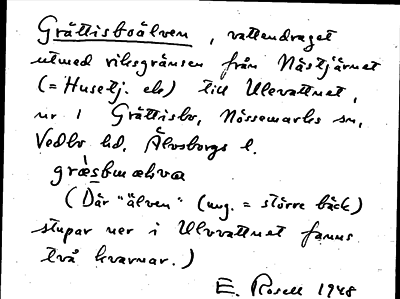 Gråttisboälven, vattendraget
utmed riksgränsen från Nästjärnet
(= Husetj. ek) till Ulevattnet,
nr 1 Gråttisbo, Nössemarks sn,
Vedbo hd. Älvsborgs l.
(Där "älven" (ung. = större bäck)
stupar ner i Ulvvattnet fanns
två kvarnar.)
E. Rosell 1948